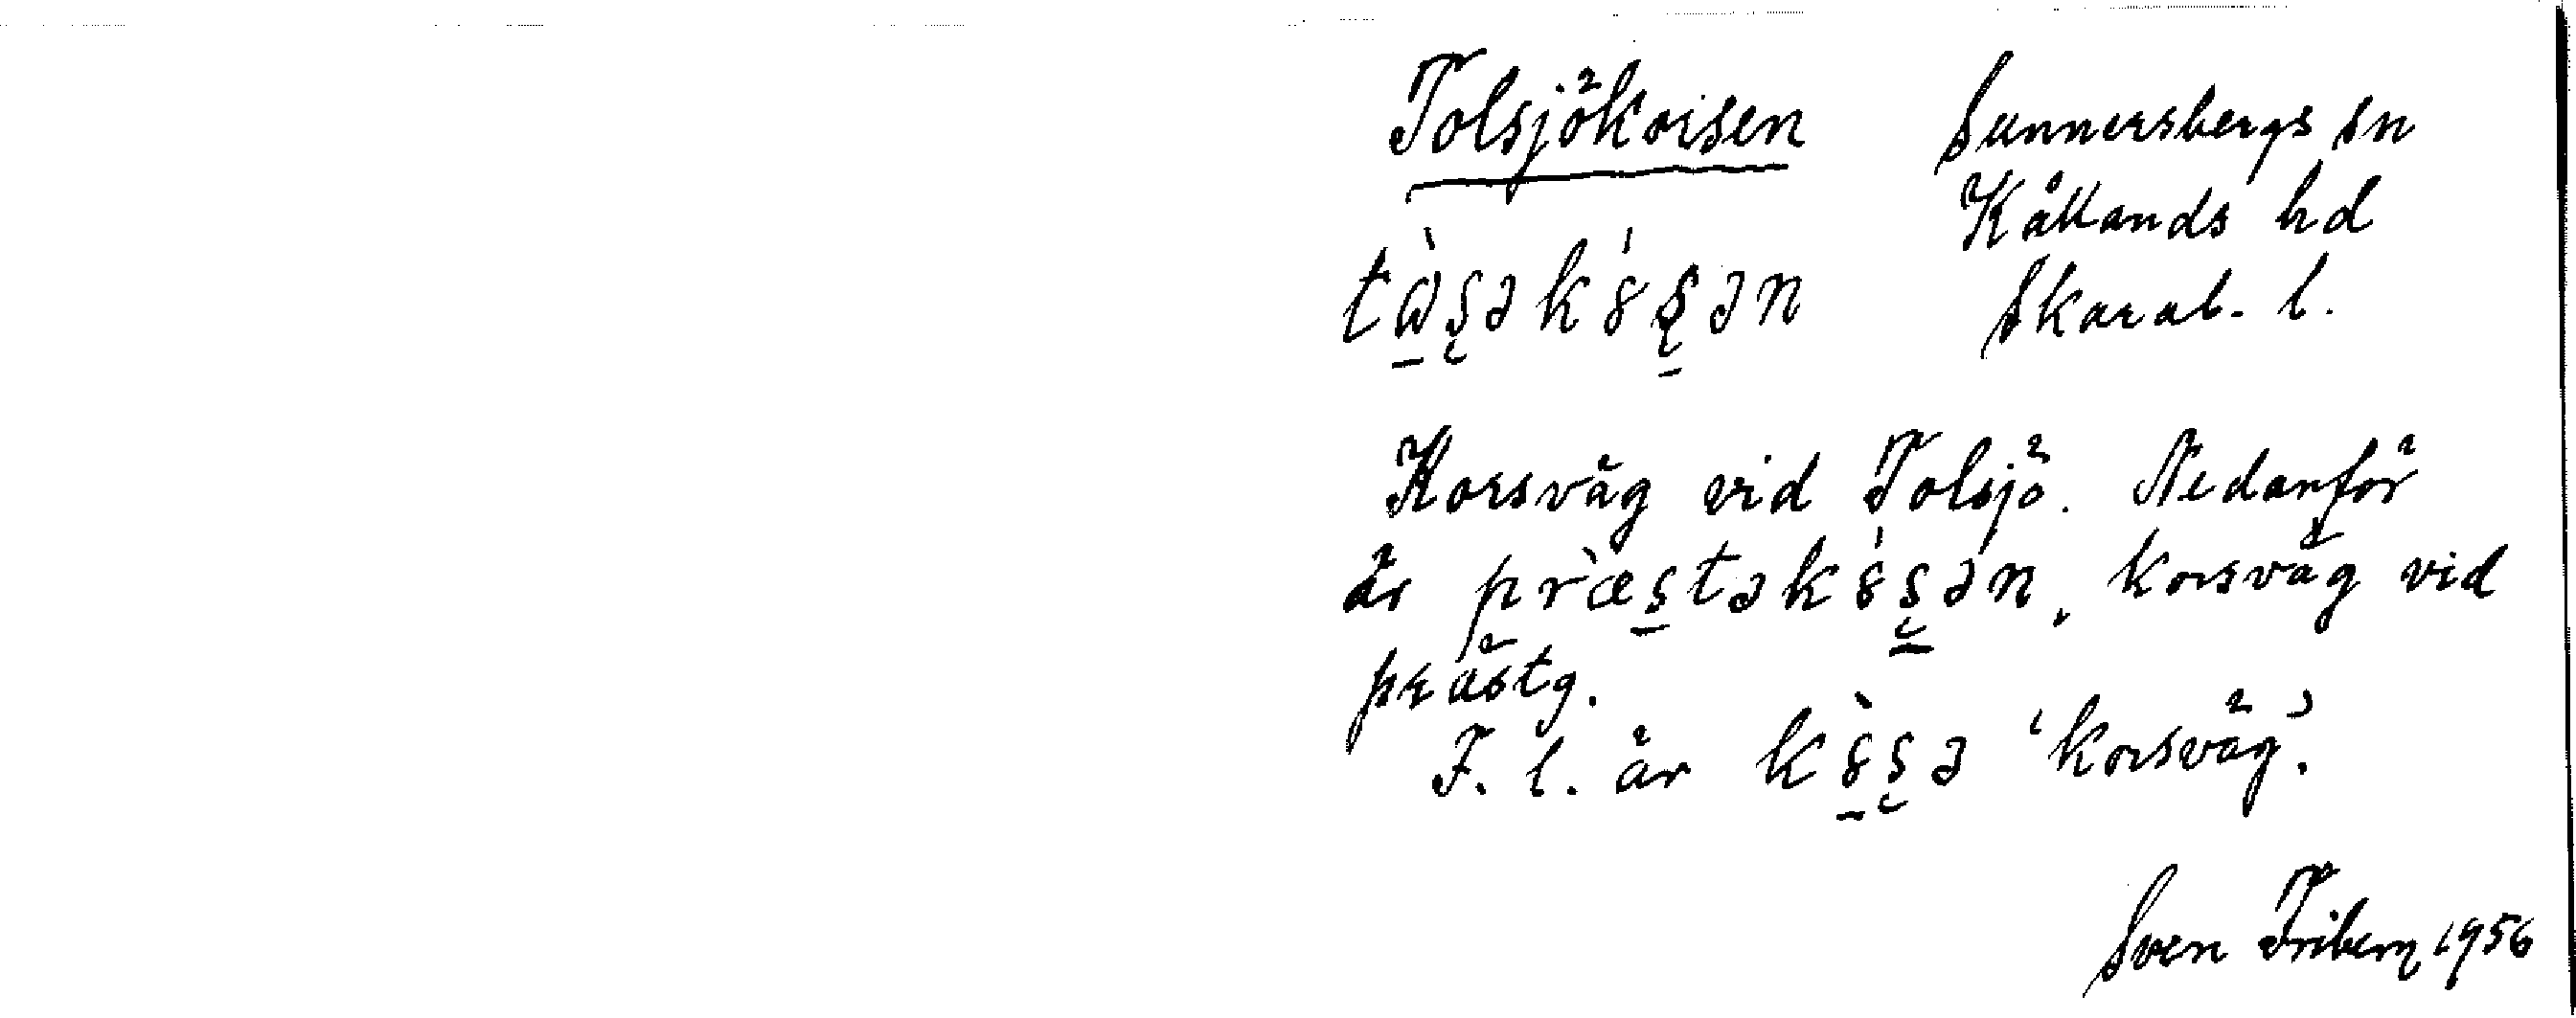 Tolsjökorsen
Sunnersbergs sn
Kållands hd
Skarab. l.
tὼʂəkȣ́ʂən
Korsväg vid Tolsjö. Nedanför
är præ̀ʂtəkȣ́ʂən, korsväg vid
prästg.
F. l. är kȣ̀ʂə 'korsväg'.
Sven Friberg 1956